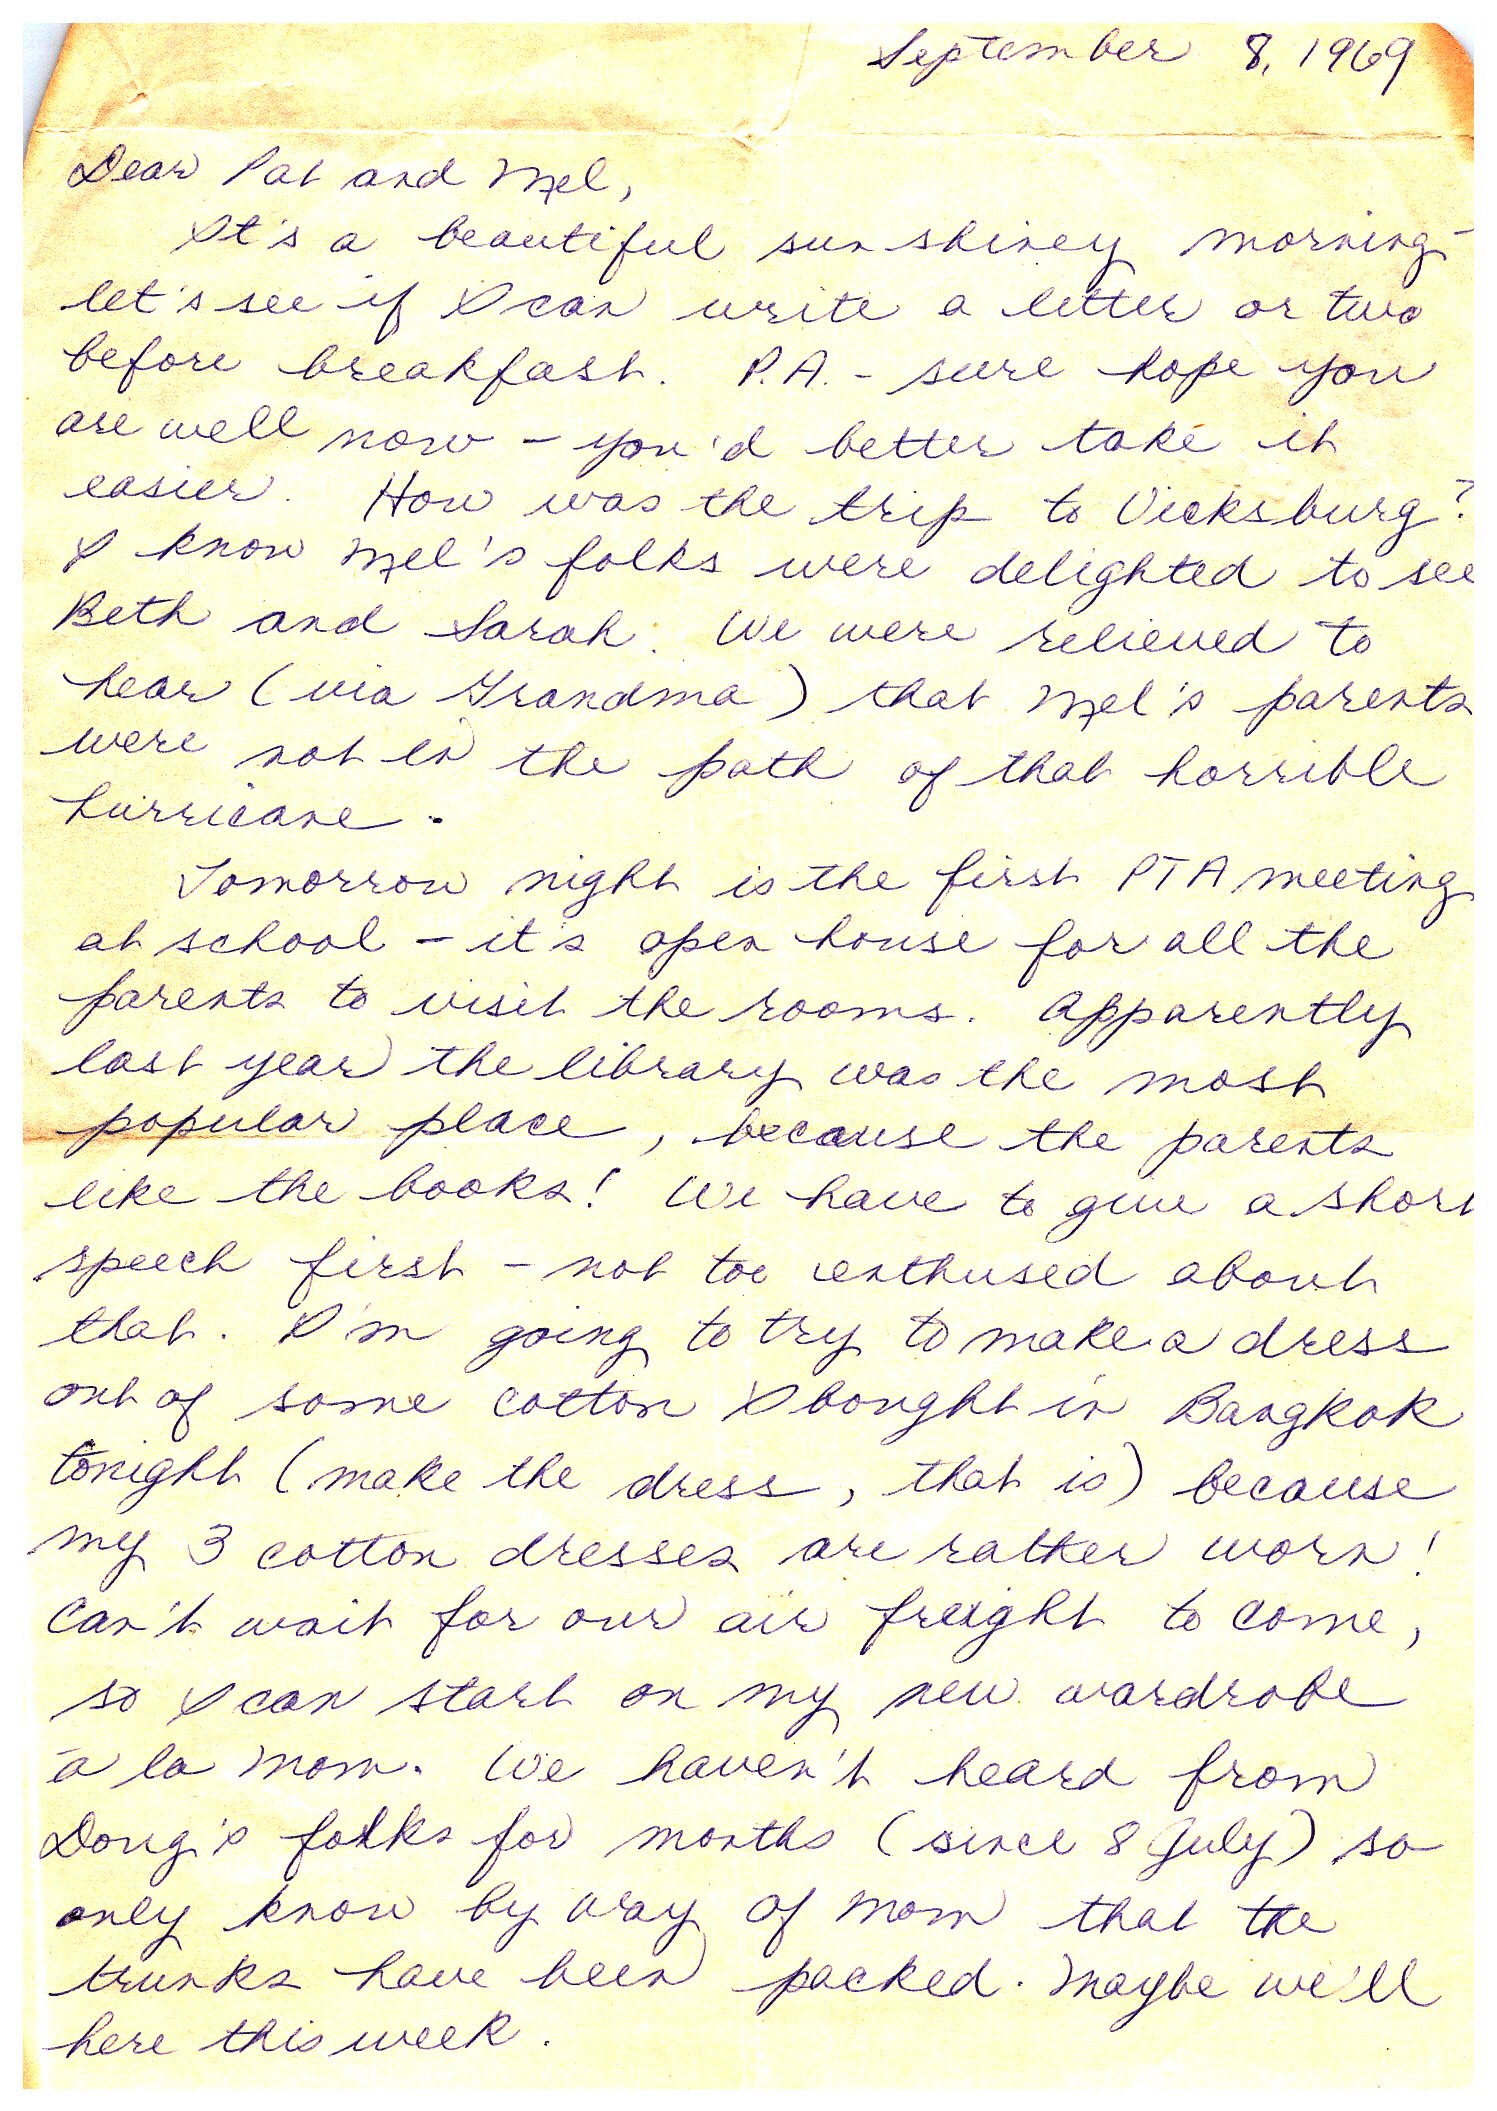 September 8, 1969
Dear Pat and Mel,
It's a beautiful sunshiney morning -
let's see if I can write a letter or two
before breakfast. P.A. - sure hope you
are well now - you'd better take it
easier. How was the trip to Vicksburg?
I know Mel's folks were delighted to see
Beth and Sarah. We were relieved to
hear (via Grandma) that Mel's parents
were not in the path of that horrible
hurricane.
Tomorrow night is the first PTA meeting
at school - it's open house for all the
parents to visit the rooms. Apparently
last year the library was the most
popular place, because the parents
like the books! We have to give a short
speech first - not too enthused about
that. I'm going to try to make a dress
out of some cotton I bought in Bangkok
tonight (make the dress, that is) because
my 3 cotton dresses are rather worn!
Can't wait for our air freight to come,
so I can start on my new wardrobe
a la Mom. We haven't heard from
Doug's folks for months (since 8 July) so
only know by way of Mom that the
trunks have been packed. Maybe we'll
here this week.